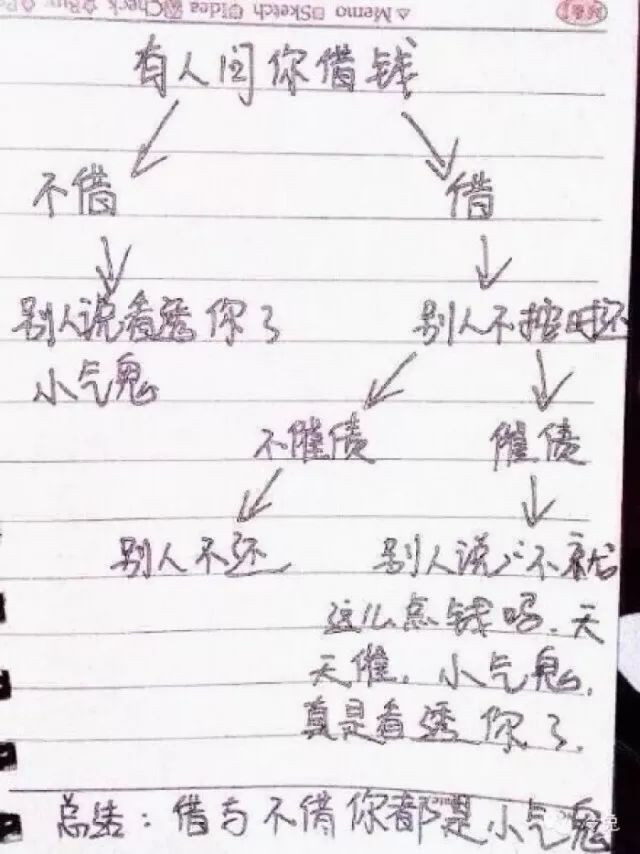 △Memo □Sketch ○Idea Check ☆Buy
有人问你借钱
不借 借
别人说看透你了 别人不按时还
小气鬼
不催债 催债
别人不还 别人说：不就
这么点钱吗，天
天催，小气鬼，
真是看透你了，
总结：借与不借你都是小气鬼